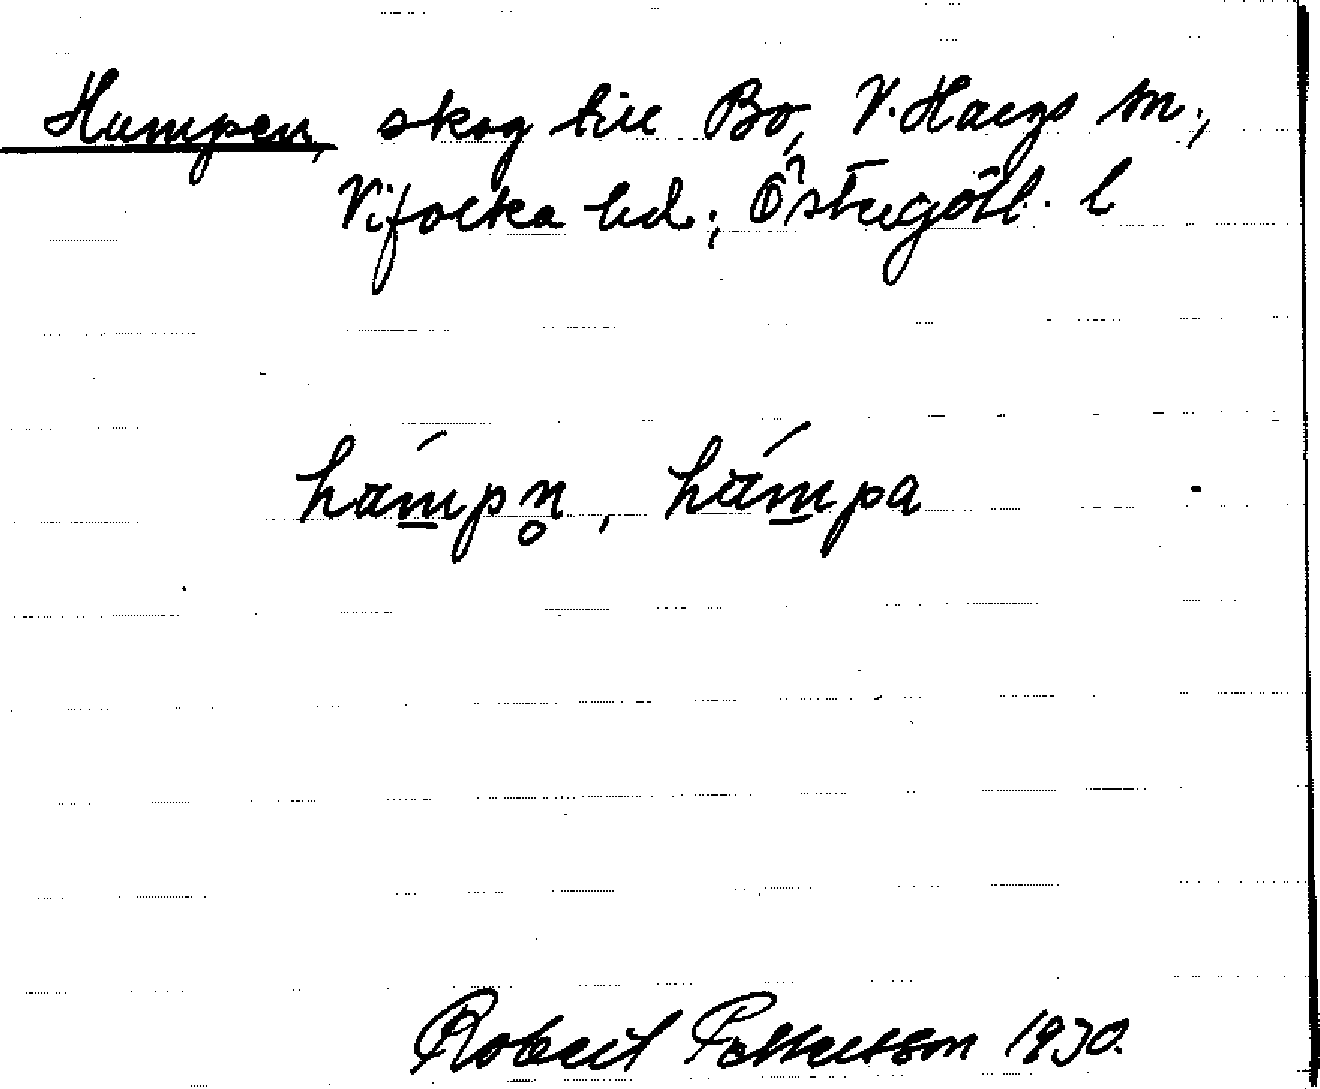 Humpen, skog till Bo, V. Hargs sn.,
Vifolka hd.; Östergötl. l
humpn̥, humpa
Robert Pettersson 1930.